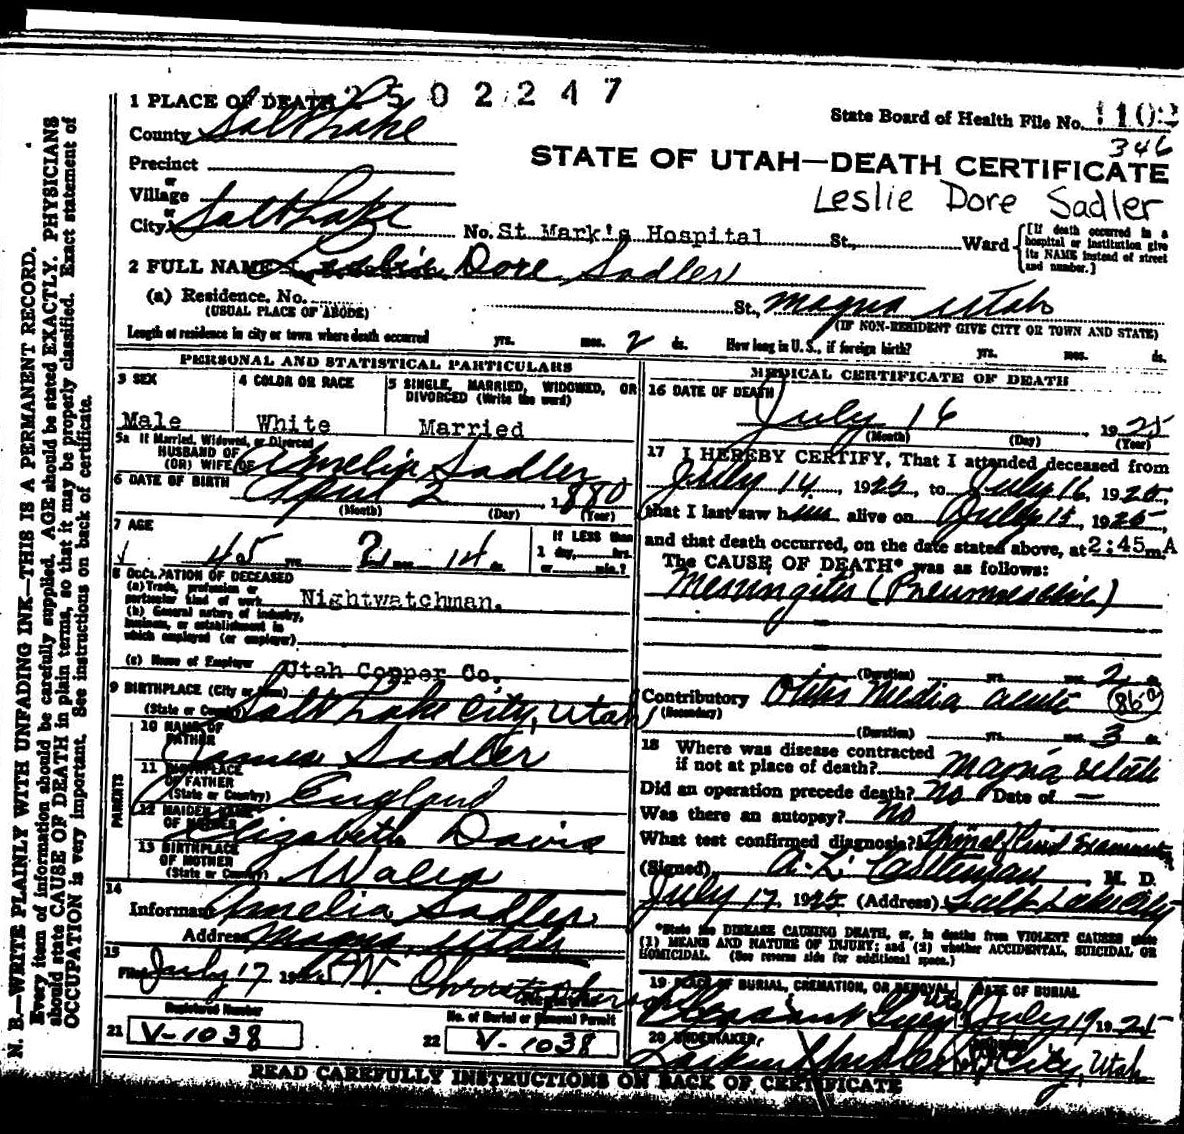 N. B.—WRITE PLAINLY WITH UNFADING INK—THIS IS A PERMANENT RECORD.
Every item of information should be carefully supplied. AGE should be stated EXACTLY. PHYSICIANS
should state CAUSE OF DEATH in plain terms, so that it may be properly classified. Exact statement of
OCCUPATION is very important. See instructions on back of certificate.
1 PLACE OF DEATH 2502247
State Board of Health File No. 1102
346
County Salt Lake
STATE OF UTAH—DEATH CERTIFICATE
Precinct
or
Village
Leslie Dore Sadler
or
City Salt Lake No. St Mark's Hospital St., Ward
[If death occurred in a hospital or institution give its NAME instead of street and number.]
2 FULL NAME Leslie Dore Sadler
(a) Residence, No. St., Magna Utah
(USUAL PLACE OF ABODE) (IF NON-RESIDENT GIVE CITY OR TOWN AND STATE)
Length of residence in city or town where death occurred yrs. mos. 2 ds. How long in U. S., if foreign birth? yrs. mos. ds.
PERSONAL AND STATISTICAL PARTICULARS
3 SEX
Male
4 COLOR OR RACE
White
5 SINGLE, MARRIED, WIDOWED, OR
DIVORCED (Write the word)
Married
5a If Married, Widowed, or Divorced
HUSBAND OF
(OR) WIFE OF Amelia Sadler
6 DATE OF BIRTH April 2, 1880
(Month) (Day) (Year)
7 AGE
45 yrs. mos. 14 ds.
If LESS than
1 day, hrs.
or min.?
8 OCCUPATION OF DECEASED
(a) Trade, profession or
particular kind of work Nightwatchman.
(b) General nature of industry,
business, or establishment in
which employed (or employer)
(c) Name of Employer Utah Copper Co.
9 BIRTHPLACE (City or Town)
(State or Country) Salt Lake City, Utah
PARENTS
10 NAME OF
FATHER James Sadler
11 BIRTHPLACE
OF FATHER
(State or Country) England
12 MAIDEN NAME
OF MOTHER Elizabeth Davis
13 BIRTHPLACE
OF MOTHER
(State or Country) Wales
14
Informant Amelia Sadler
Address Magna, Utah
15
Filed July 17 1925 W. Christopherson
Registered Number
21 V-1038
No. of Burial or Removal Permit
22 V-1038
MEDICAL CERTIFICATE OF DEATH
16 DATE OF DEATH
July 16, 1925
(Month) (Day) (Year)
17 I HEREBY CERTIFY, That I attended deceased from
July 14, 1925, to July 16, 1925,
that I last saw him alive on July 15, 1925,
and that death occurred, on the date stated above, at 2:45 m A
The CAUSE OF DEATH* was as follows:
Meningitis (Pneumococcic)
(Duration) yrs. mos. 2 ds.
Contributory Otitis Media acute 86
(Secondary)
(Duration) yrs. mos. 3 ds.
18 Where was disease contracted
if not at place of death? Magna Utah
Did an operation precede death? No Date of —
Was there an autopsy? No
What test confirmed diagnosis? Spinal fluid Examination
(Signed) A. L. Castleman, M. D.
July 17, 1925 (Address) Salt Lake City
*State the DISEASE CAUSING DEATH, or, in deaths from VIOLENT CAUSES state
(1) MEANS AND NATURE OF INJURY; and (2) whether ACCIDENTAL, SUICIDAL OR
HOMICIDAL. (See reverse side for additional space.)
19 PLACE OF BURIAL, CREMATION, OR REMOVAL DATE OF BURIAL
Pleasant Green July 19 1925
20 UNDERTAKER,
City, Utah
READ CAREFULLY INSTRUCTIONS ON BACK OF CERTIFICATE